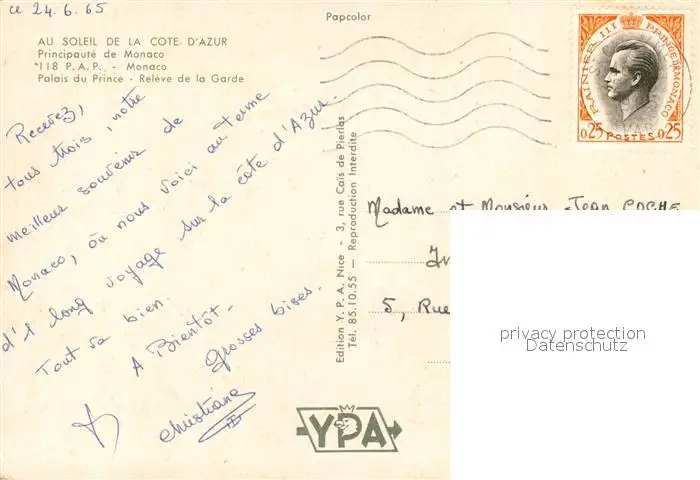 ce 24.6.65
Papcolor
AU SOLEIL DE LA COTE D'AZUR
Principauté de Monaco
*118 P.A.P. - Monaco
Palais du Prince - Relève de la Garde
Recevez,
tous trois, notre
meilleur souvenir de
Monaco, où nous voici au terme
d'1 long voyage sur la côte d'Azur.
Tout va bien.
A Bientôt.
Grosses bises.
Christiane
Edition Y. P. A. Nice - 3, rue Caïs de Pierlas
Tél. 85.10.55 — Reproduction Interdite
YPA
RAINIER III PRINCE DE MONACO
0,25 POSTES 0,25
Madame et Monsieur Jean COCHE
5, Rue
privacy protection
Datenschutz